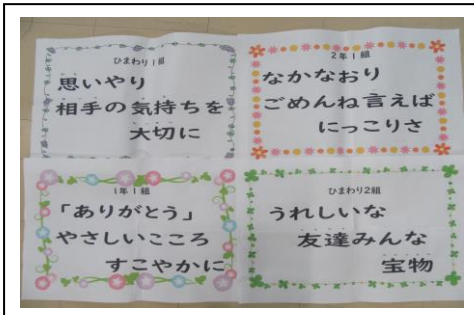 ひまわり1組
思いやり
相手の気持ちを
大切に
2年1組
なかなおり
ごめんね言えば
にっこりさ
1年1組
「ありがとう」
やさしいこころ
すこやかに
ひまわり2組
うれしいな
友達みんな
宝物